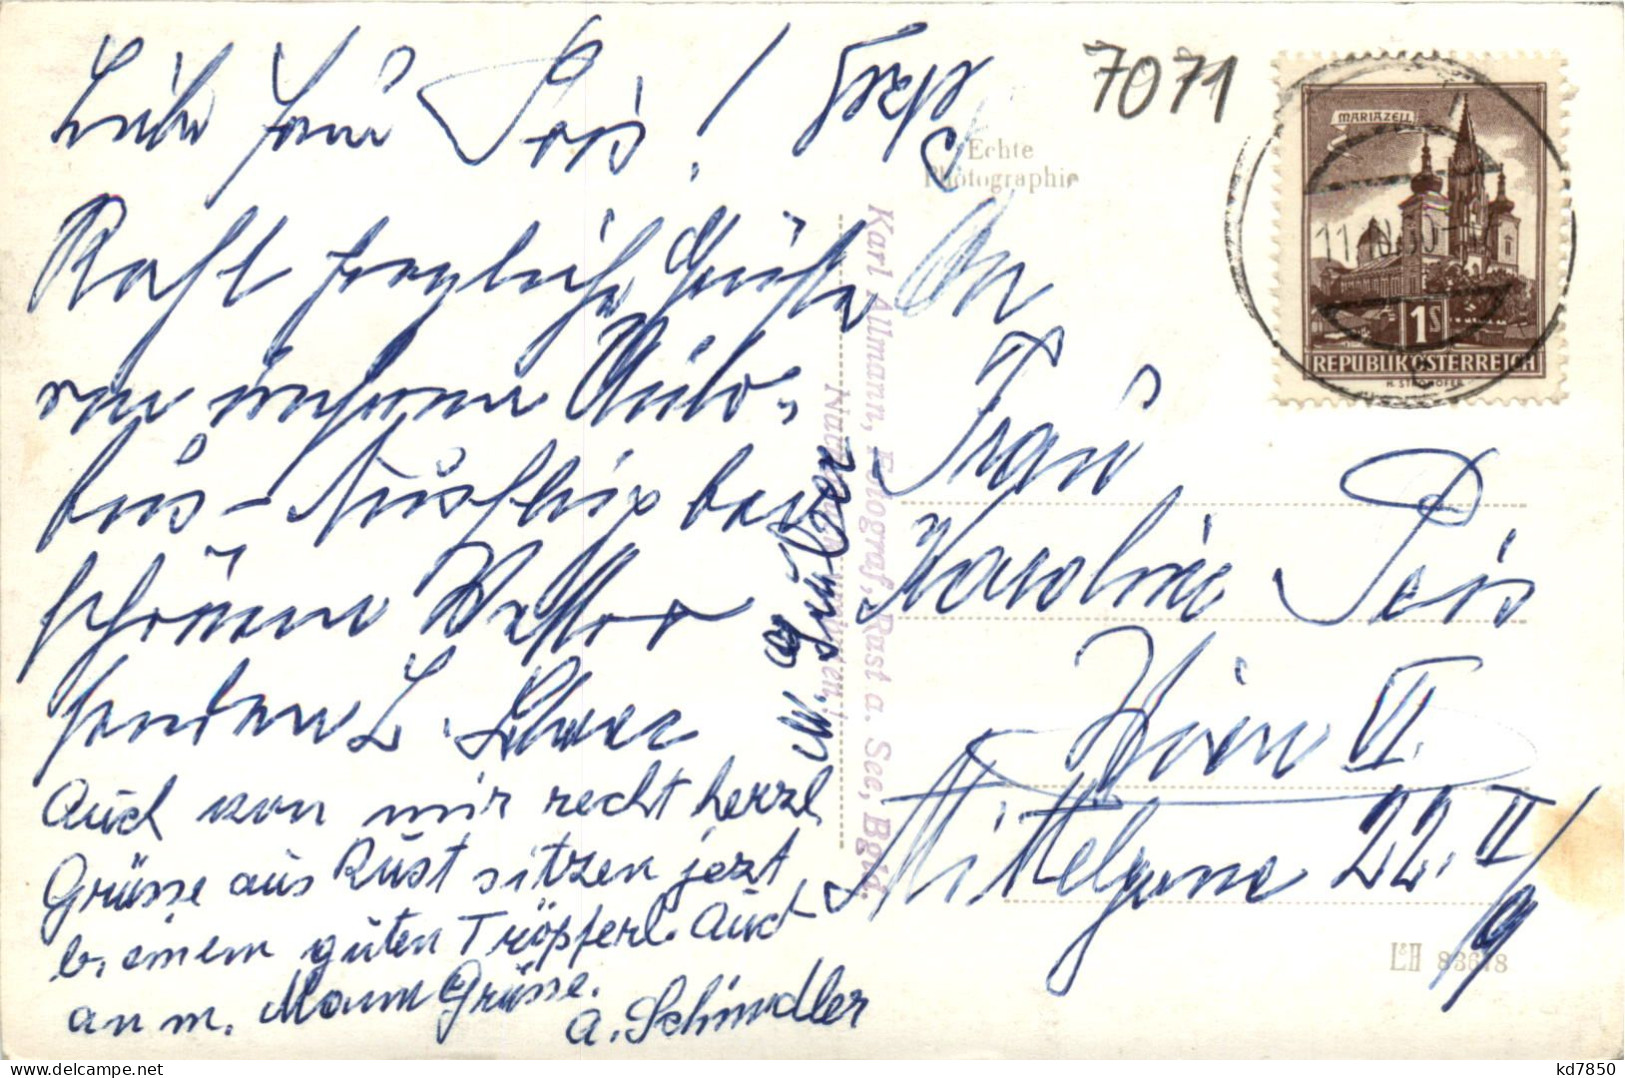 Liebe Frau Pois!
7071
Recht herzliche Grüße
von unserem Auto-
bus-Ausflug bei
schönem Wetter
senden L.
Auch von mir recht herzl
Grüsse aus Rust sitzen jezt
b. einem guten Tröpferl. Auch
an m. Mann Grüsse.
A. Schindler
Echte
Photographie
Karl Allmann, Fotograf, Rust a. See, Bgld.
An
Frau
Karoline Pois
Wien VI.
Mittelgasse 22. II/9
MARIAZELL
1S
REPUBLIK ÖSTERREICH
H. STROHOFER
L&H 83678
kd7850